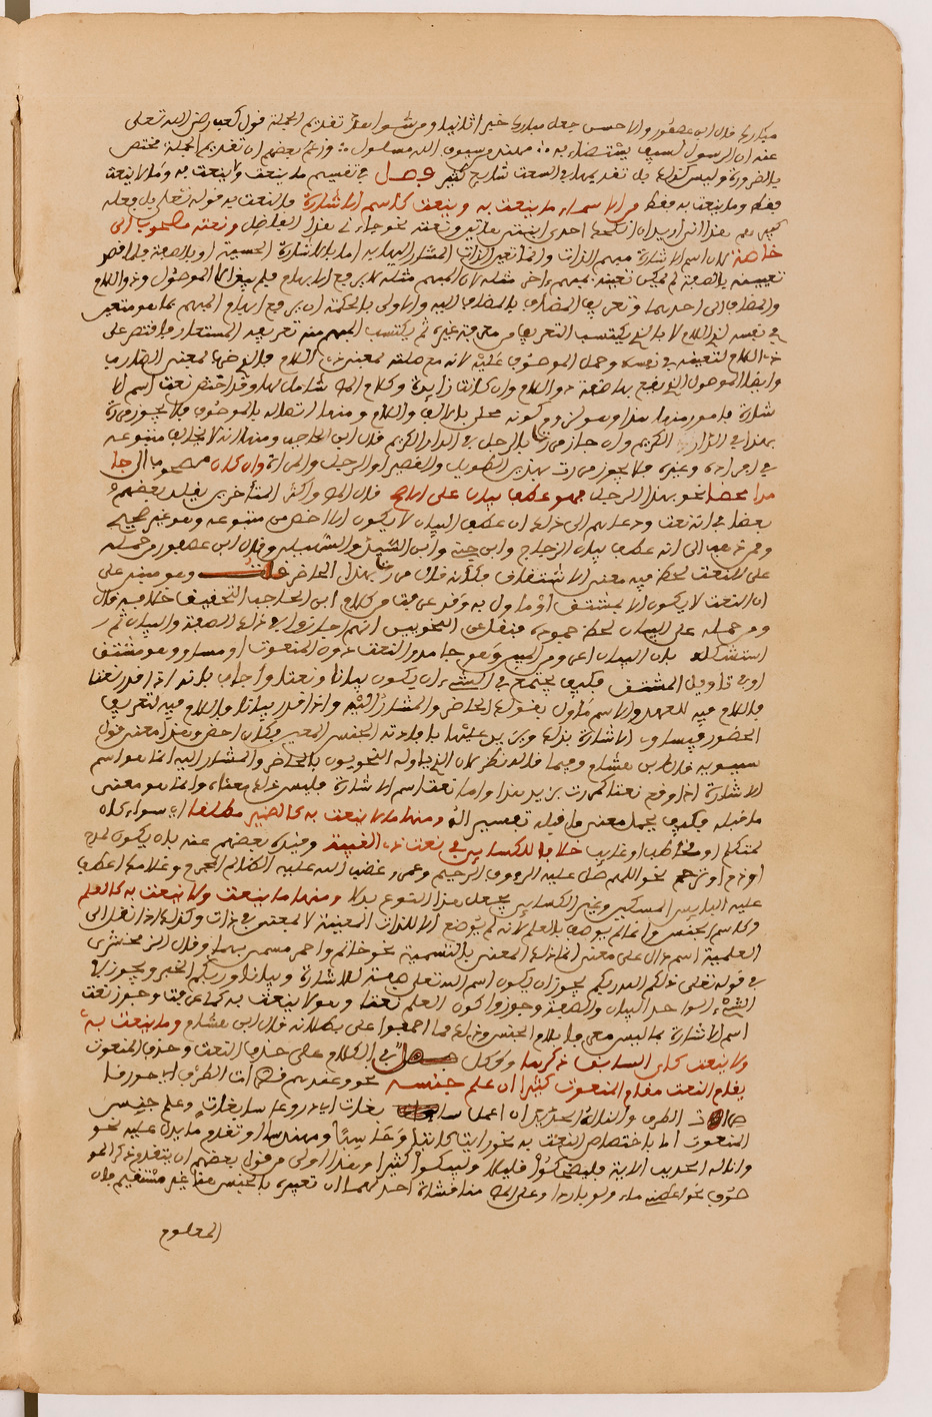 مبارك قال ابن عصفور والاحسن جعل مبارك خبرا ثانيا ومن شواهد تقديم الجملة قول كعب رضي الله تعالى
عنه ان الرسول لسيف يستضاء به مهند من سيوف الله مسلول وزعم بعضهم ان تقديم الجملة مختص
بالضرورة وليس كذلك بل تقديمها في السعت شايع كثير فصل في تقسيم ما ينعت ولا ينعت به وما لا ينعت
فقط وما ينعت به فقط من الاسماء ما ينعت به وينعت كاسم الاشارة فالنعت به قوله تعالى بل فعله
كبيرهم هذا اني اريد ان انكحك احدى ابنتي هاتين ونعته نحو جاءني هذا الفاضل ونعته مصحوب ال
خاصة لان اسم الاشارة مبهم الذات وانما تعين الذات المشار اليها به اما بالاشارة الحسية او بالصفة فلما قصد
تعيينه بالصفة لم يمكن تعيينه بمبهم اخر مثله لان المبهم مثله لا يرفع الابهام فلم يبق الا الموصول وذو اللام
والمضاف الى احدهما وتعريف المضاف بالمضاف اليه والاولى بالحكمة ان يرفع ابهام المبهم بما هو متعين
في نفسه كذي اللام لا بالذي يكتسب التعريف من معرفة غيره ثم يكتسب المبهم منه تعريفه المستعار فاقتصر على
ذي اللام لتعيينه في نفسه وحمل الموصول عليه لانه مع صلته بمعنى ذي اللام فالذي ضرب بمعنى الضارب
وايضا الموصول الذي يقع بها صفة ذو اللام وان كانت زايدة وكلام المص شامل لها وقد اختص نعت اسم الا
شارة بامور منها هذا وهو كونه محلى بالالف واللام ومنها اتصاله بالموصوف فلا يجوز مررت
بهذا في الدار الكريم وان جاز مررت بالرجل في الدار الكريم قال ابن الحاجب ومنها انه لا يخالف متبوعه
في افراده وغيره فلا يجوز مررت بهذين الطويل والقصير او الرجل والمراة وان كان مصحوب ال جا
مدا محضا نحو بهذا الرجل فهو عطف بيان على الاصح قال المص واكثر المتاخرين يقلد بعضهم
بعضا في انه نعت ودعاهم الى ذلك ان عطف البيان لا يكون الا اخص من متبوعه وهو غير صحيح
وممن ذهب الى انه عطف بيان الزجاج وابن جني وابن السيد والسهيلي وقال ابن عصفور من حمله
على النعت لحظ فيه معنى الاشتقاق فكانه قال مررت بهذا الحاضر قلت وهو مبني على
ان النعت لا يكون الا بمشتق او ماول به وقد عرفت من كلام ابن الحاجب التحقيق خلافه قال
ومن حمله على البيان لحظ جموده فنقل عن النحويين انهم اجازوا في ذلك الصفة والبيان ثم
استشكله بان البيان اعرف من المبين وهو جامد والنعت دون المنعوت او مساو وهو مشتق
او في تاويل المشتق فكيف يجتمع في الشيء ان يكون بيانا ونعتا واجاب بانه اذا قدر نعتا
فاللام فيه للعهد والاسم ماول بقولك الحاضر والمشار اليه واذا قدر بيانا فاللام فيه لتعريف
الحضور فيساوي الاشارة بذلك ويزيد عليها بافادته الجنس المعين فكان اخص وهذا معنى قول
سيبويه قال ابن هشام وفيما قاله نظر لان الذي اوله النحويون بالحاضر والمشار اليه انما هو اسم
الاشارة اذا وقع نعتا كمررت بزيد هذا واما نعت اسم الاشارة فليس ذلك معناه وانما هو معنى
ما قبله فكيف يجعل معنى ما قبله تفسيرا له ومنها ما لا ينعت به كالضمير مطلقا اي سواء كان
لمتكلم او مخاطب او غايب خلافا للكسايي في نعت ذي الغيبة وقيده بعضهم عنه بان يكون لمدح
او ذم او ترحم نحو اللهم صل عليه الرءوف الرحيم وعمرو غضب الله عليه الظالم المجرم وغلامك الطف
عليه البايس المسكين وغير الكسايي يجعل هذا النوع بدلا ومنها ما ينعت ولا ينعت به كالعلم
وكاسم الجنس وانما لم يوصف بالعلم لانه لم يوضع الا للذات المعينة لا لمعنى في ذات وكذلك اذا نقل الى
العلمية اسم دال على معنى انما ذلك المعنى بالتسمية نحو خاتم واحمر مسمى بهما وقال الزمخشري
في قوله تعالى ذلكم الله ربكم يجوز ان يكون اسم الله تعالى صفة للاشارة وبيانا وربكم الخبر ويجوز في
الشيء الواحد البيان والصفة وجوزوا كون العلم نعتا وهو لا ينعت به كما عرفت وجوز نعت
اسم الاشارة بما ليس معرفا بلام الجنس وذلك مما اجمعوا على بطلانه قال ابن هشام وما ينعت به
ولا ينعت كاي السابق ذكرها وككل فصل في الكلام على حذف النعت وحذف المنعوت
يقام النعت مقام المنعوت كثيرا ان علم جنسه نحو وعندهم قاصرات الطرف اي حور قا
صرات الطرف والنا له الحديد ان اعمل سابغات اي دروعا سابغات وعلم جنس
المنعوت اما باختصاص النعت به نحو رايت كاتبا وحاسبا ومهندسا او تقدم ما يدل عليه نحو
والنا له الحديد الاية فليضحكوا قليلا وليبكوا كثيرا وهذا اولى من قول بعضهم ان يتقدم ذكر المو
صوف نحو اعطني ماء ولو باردا وعلى المص مناقشة احداهما ان تعبيره بالجنس هنا غير مستقيم فان
المعلوم